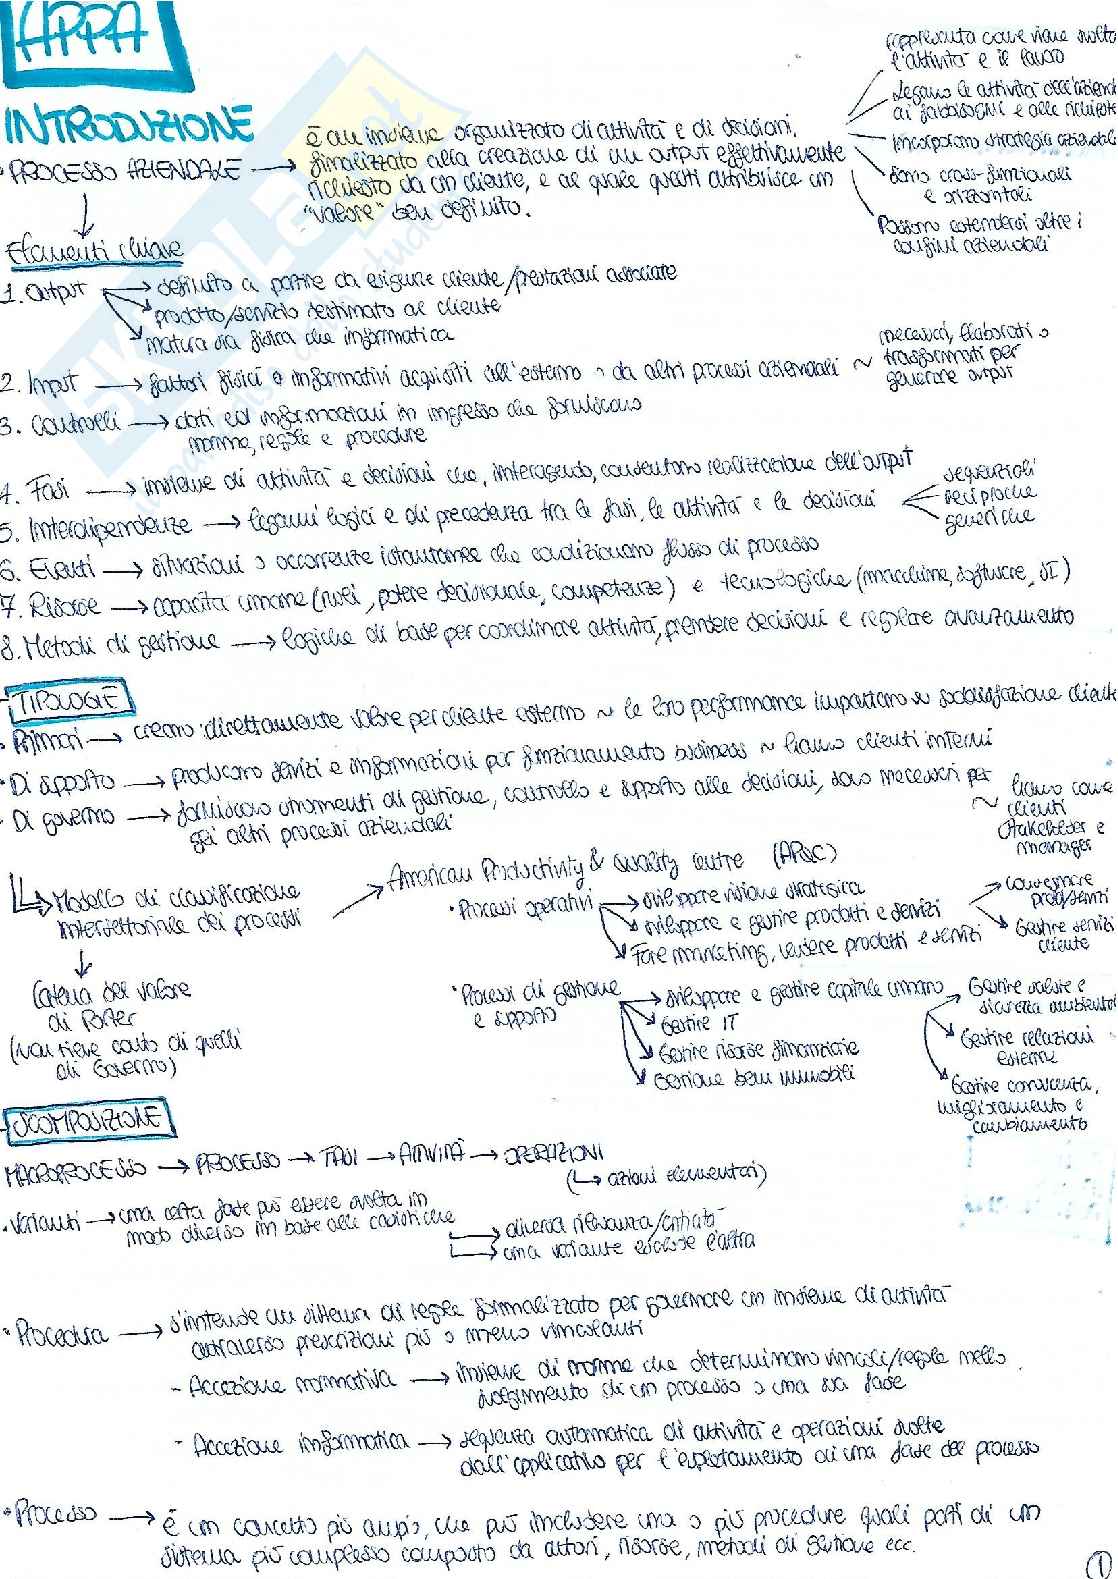 APPA
INTRODUZIONE
• PROCESSO AZIENDALE → è un insieme organizzato di attività e di decisioni,
finalizzato alla creazione di un output effettivamente
richiesto da un cliente, e al quale questi attribuisce un
"valore" ben definito.
rappresenta come viene svolto
l'attività e il lavoro
Legano le attività dell'azienda
ai fabbisogni e alle richieste
incorporano strategia aziendale
Sono cross-funzionali
e orizzontali
Possono estendersi oltre i
confini aziendali
Elementi chiave
1. Output → definito a partire da esigenze cliente/prestazioni associate
→ prodotto/servizio destinato al cliente
→ natura sia fisica che informatica
2. Input → fattori fisici o informativi acquisiti all'esterno o da altri processi aziendali ~ necessari, elaborati o
trasformati per
generare output
3. Controlli → dati ed informazioni in ingresso che forniscono
norme, regole e procedure
4. Fasi → insieme di attività e decisioni che, interagendo, consentono realizzazione dell'output
5. Interdipendenze → legami logici e di precedenza tra le fasi, le attività e le decisioni
sequenziali
reciproche
generiche
6. Eventi → situazioni o occorrenze istantanee che condizionano flusso di processo
7. Risorse → capacità umane (ruoli, potere decisionale, competenze) e tecnologiche (macchine, software, SI)
8. Metodi di gestione → logiche di base per coordinare attività, prendere decisioni e regolare avanzamento
- TIPOLOGIE
• Primari → creano direttamente valore per cliente esterno ~ le loro performance impattano su soddisfazione cliente
• Di supporto → producono servizi e informazioni per funzionamento business ~ hanno clienti interni
• Di governo → forniscono strumenti di gestione, controllo e supporto alle decisioni, sono necessari per
gli altri processi aziendali
~ hanno come
clienti
stakeholder e
manager
↳ Modello di classificazione
intersettoriale dei processi
→ American Productivity & Quality Centre (APQC)
• Processi operativi → sviluppare visione strategica
→ sviluppare e gestire prodotti e servizi
→ Fare marketing, vendere prodotti e servizi
→ Consegnare
prod/servizi
→ Gestire servizi
cliente
Catena del valore
di Porter
(non tiene conto di quelli
di Governo)
• Processi di gestione
e supporto
→ sviluppare e gestire capitale umano
→ Gestire IT
→ Gestire risorse finanziarie
→ Gestione beni immobili
→ Gestire salute e
sicurezza ambientale
→ Gestire relazioni
esterne
→ Gestire conoscenza,
miglioramento e
cambiamento
- SCOMPOSIZIONE
MACROPROCESSO → PROCESSO → FASI → ATTIVITÀ → OPERAZIONI
(↳ azioni elementari)
• Varianti → una certa fase può essere svolta in
modo diverso in base alle casistiche
→ diversa rilevanza/criticità
→ una variante esclude l'altra
• Procedura → s'intende un sistema di regole formalizzato per governare un insieme di attività
attraverso prescrizioni più o meno vincolanti
- Accezione normativa → insieme di norme che determinano vincoli/regole nello
svolgimento di un processo o una sua fase
- Accezione informatica → sequenza automatica di attività e operazioni svolte
dall'applicativo per l'espletamento di una fase del processo
• Processo → è un concetto più ampio, che può includere una o più procedure quali parti di un
sistema più complesso composto da attori, risorse, metodi di gestione ecc.
1